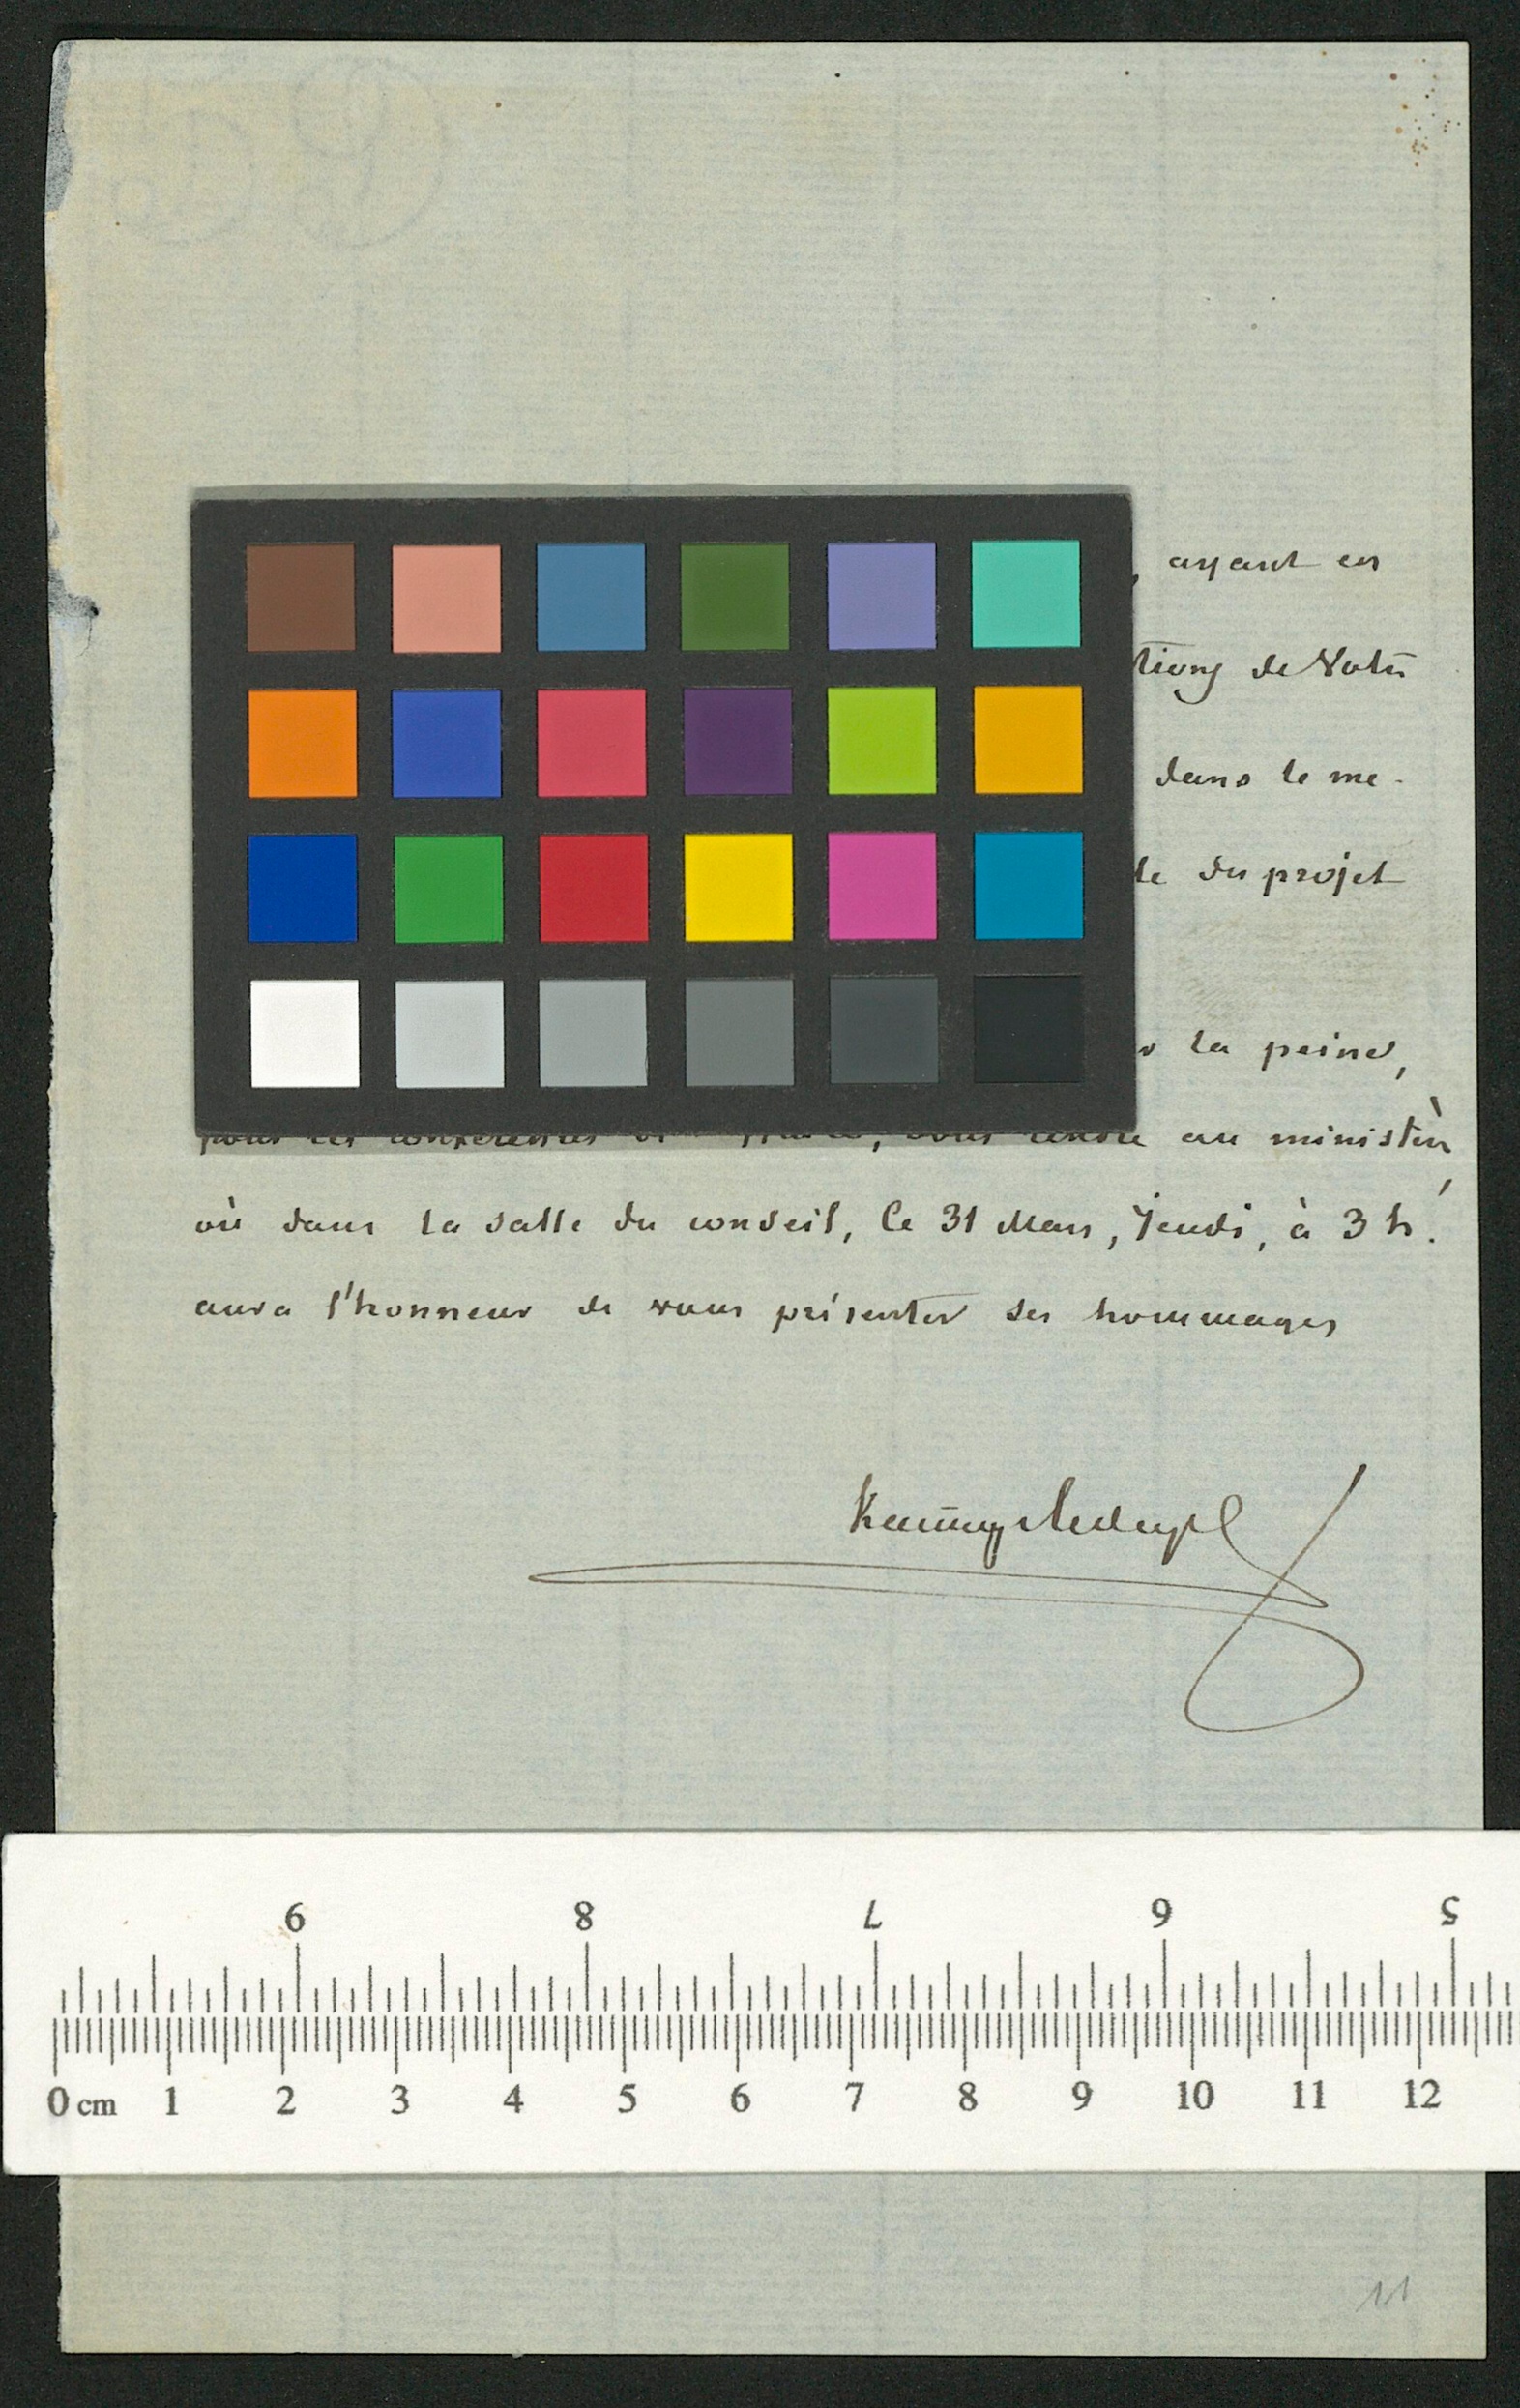 , ayant en
tions de Votre
dans le me-
le du projet
la peine,
pour les conférences vous rendre au ministère
où dans la salle du conseil, le 31 Mars, Jeudi, à 3 h.
aura l'honneur de vous présenter ses hommages
9 8 7 6 5
0 cm 1 2 3 4 5 6 7 8 9 10 11 12
11